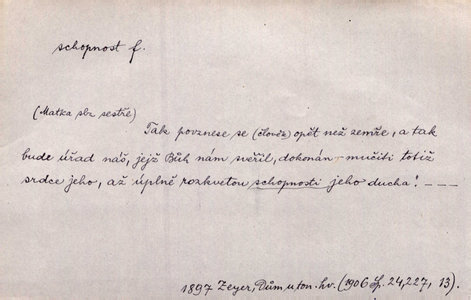 schopnost f.
(Matka sbz sestře)
Tak povznese se (člověk) opět než zemře, a tak
bude úřad náš, jejž Bůh nám svěřil, dokonán – mučiti totiž
srdce jeho, až úplně rozkvetou schopnosti jeho ducha! – – –
1897 Zeyer, Dům u ton. hv. (1906 Sp. 24, 227, 13).